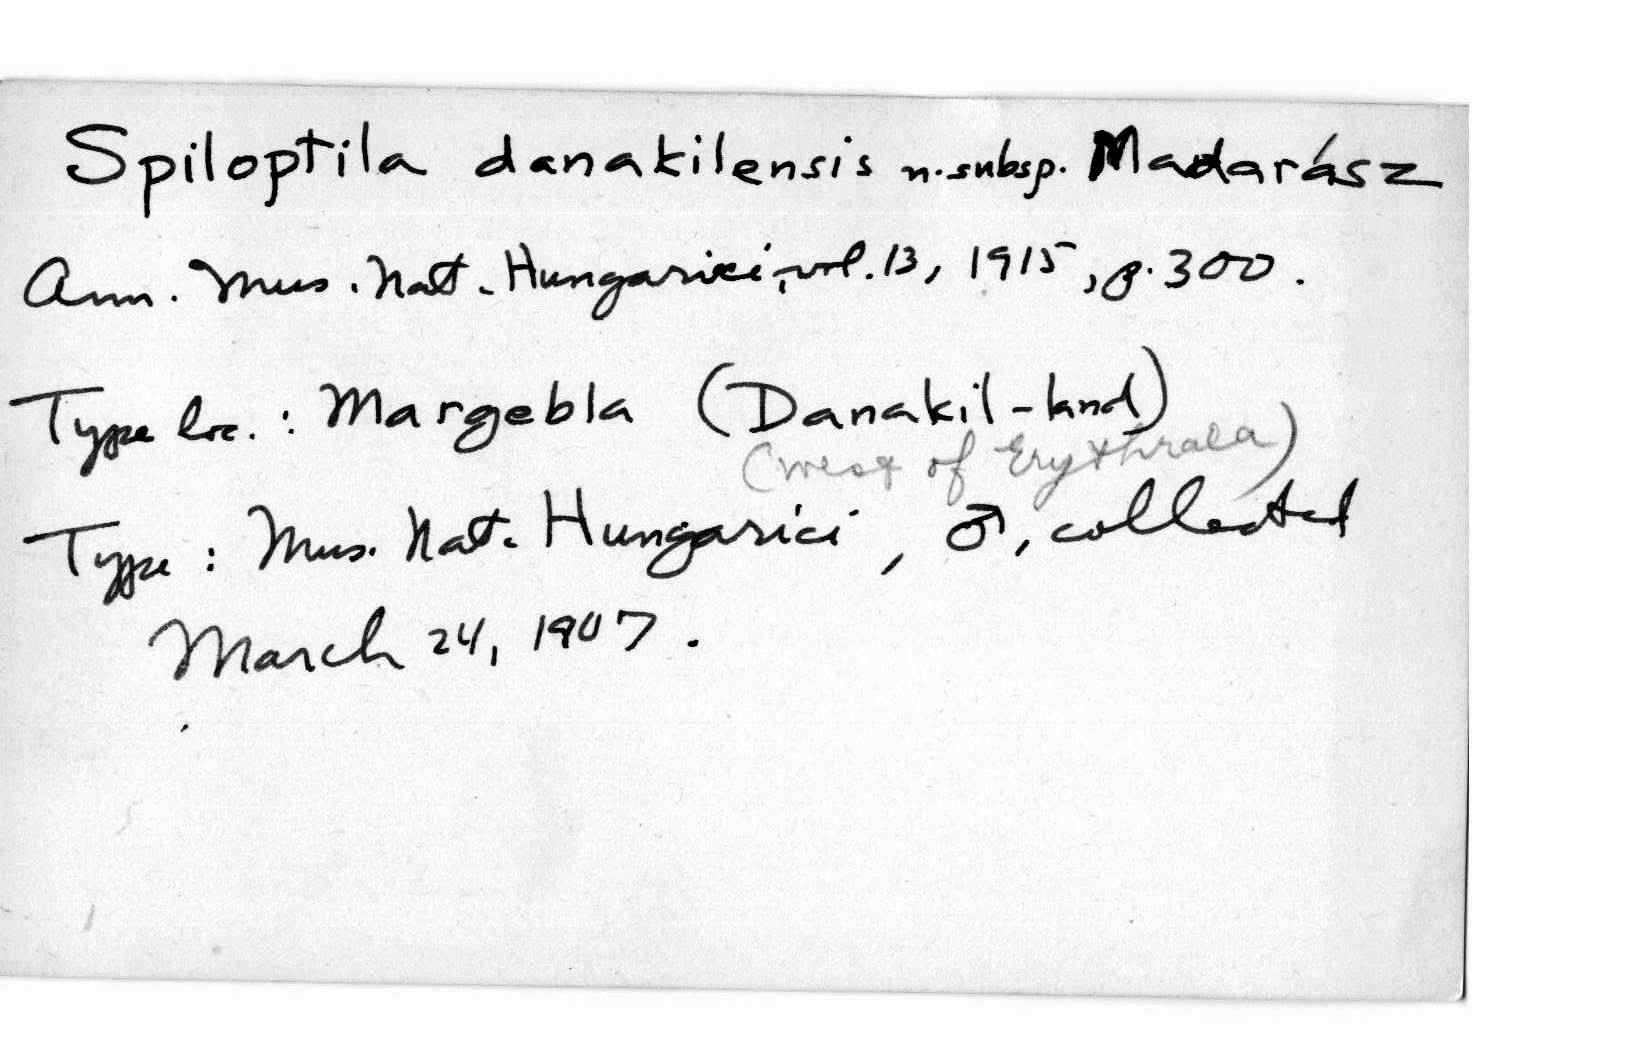 Spiloptila danakilensis n. subsp. Madarász
Ann. Mus. Nat. Hungarici, vol. 13, 1915, p. 300.
Type loc.: Margebla (Danakil-land)
(west of Erythraea)
Type: Mus. Nat. Hungarici, ♂, collected
March 24, 1907.